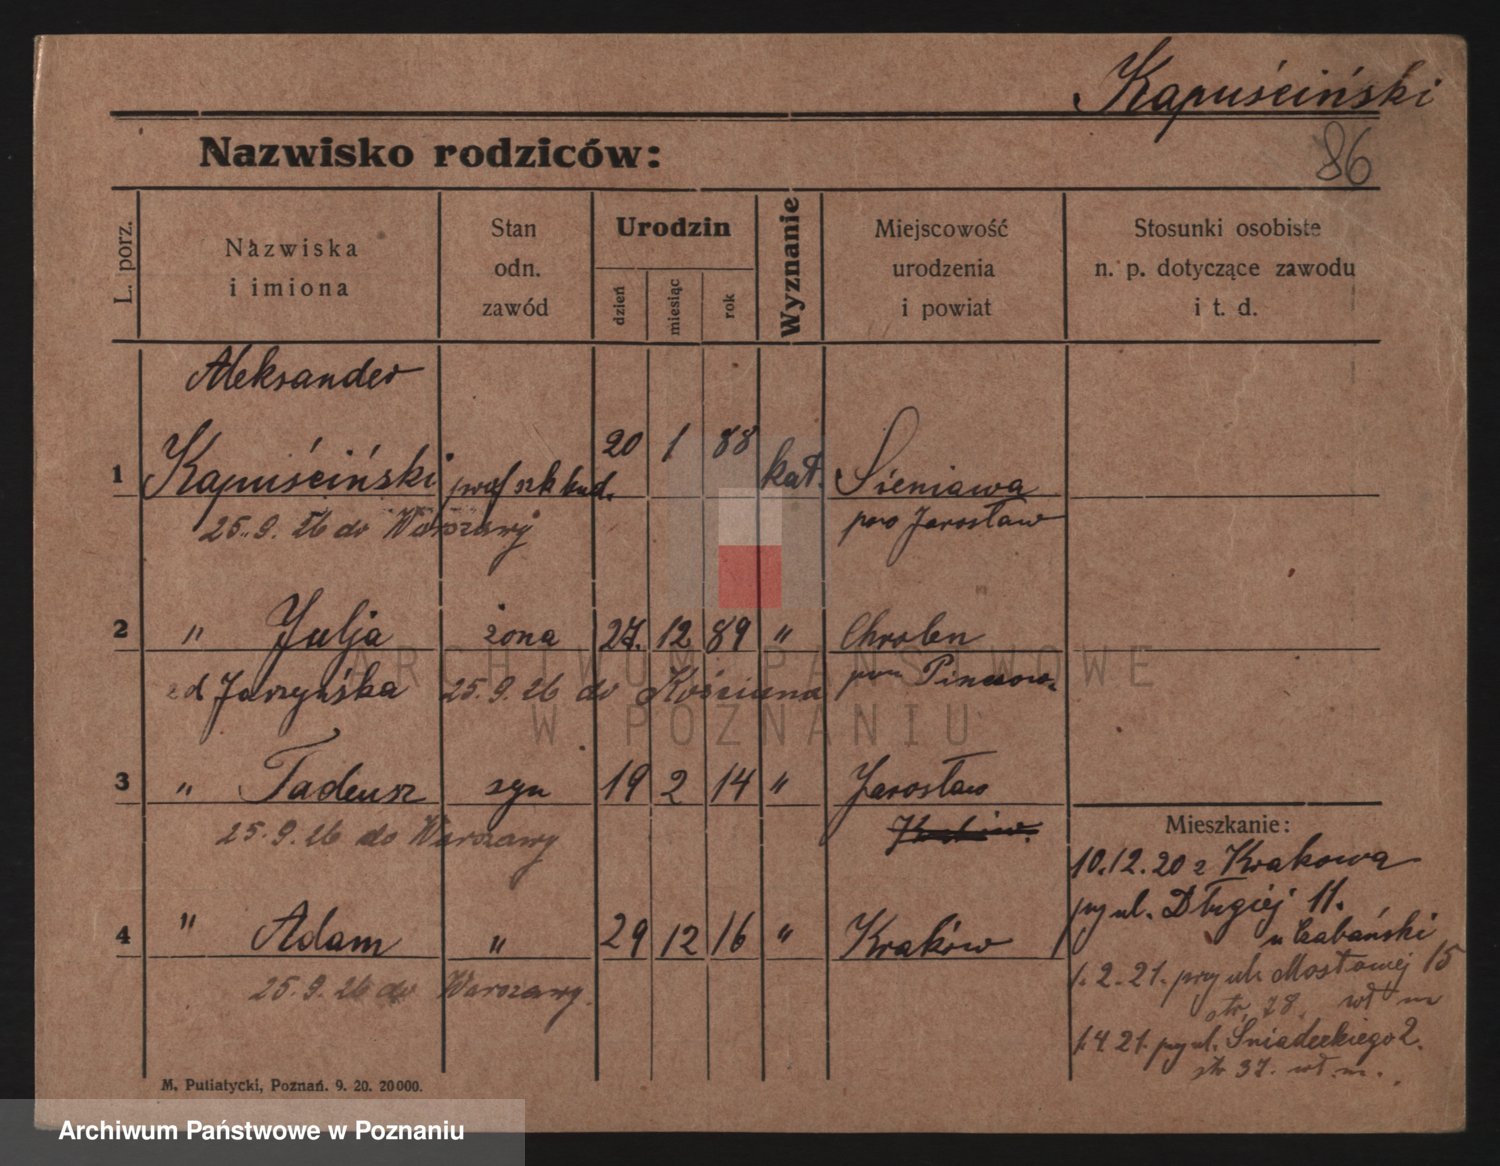 Kapuściński
86
Nazwisko rodziców:
L. porz.
Nazwiska
i imiona
Stan
odn.
zawód
Urodzin
dzień
miesiąc
rok
Wyznanie
Miejscowość
urodzenia
i powiat
Stosunki osobiste
n. p. dotyczące zawodu
i t. d.
Aleksander
1 Kapuściński prof szk bud. 20 1 88 kat. Sieniawa
25.9.26 do Warszawy pow Jarosław
2 " Julja żona 27. 12 89 " Chroben
zd Jarzyńska 25.9.26 do Kościana pow
3 " Tadeusz syn 19 2 14 " Jarosław
25.9.26 do Warszawy
4 " Adam " 29 12 16 " Kraków
25.9.26 do Warszawy.
Mieszkanie:
10.12.20 z Krakowa
przy ul. Długiej 11.
u Czabański
1.2.21. przy ul. Mostowej 15
str. 28. wł m
1.4.21. przy ul. Śniadeckiego 2.
str 37. wł. m.
M. Putiatycki, Poznań. 9. 20. 20000.
ARCHIWUM PAŃSTWOWE
W POZNANIU
Archiwum Państwowe w Poznaniu